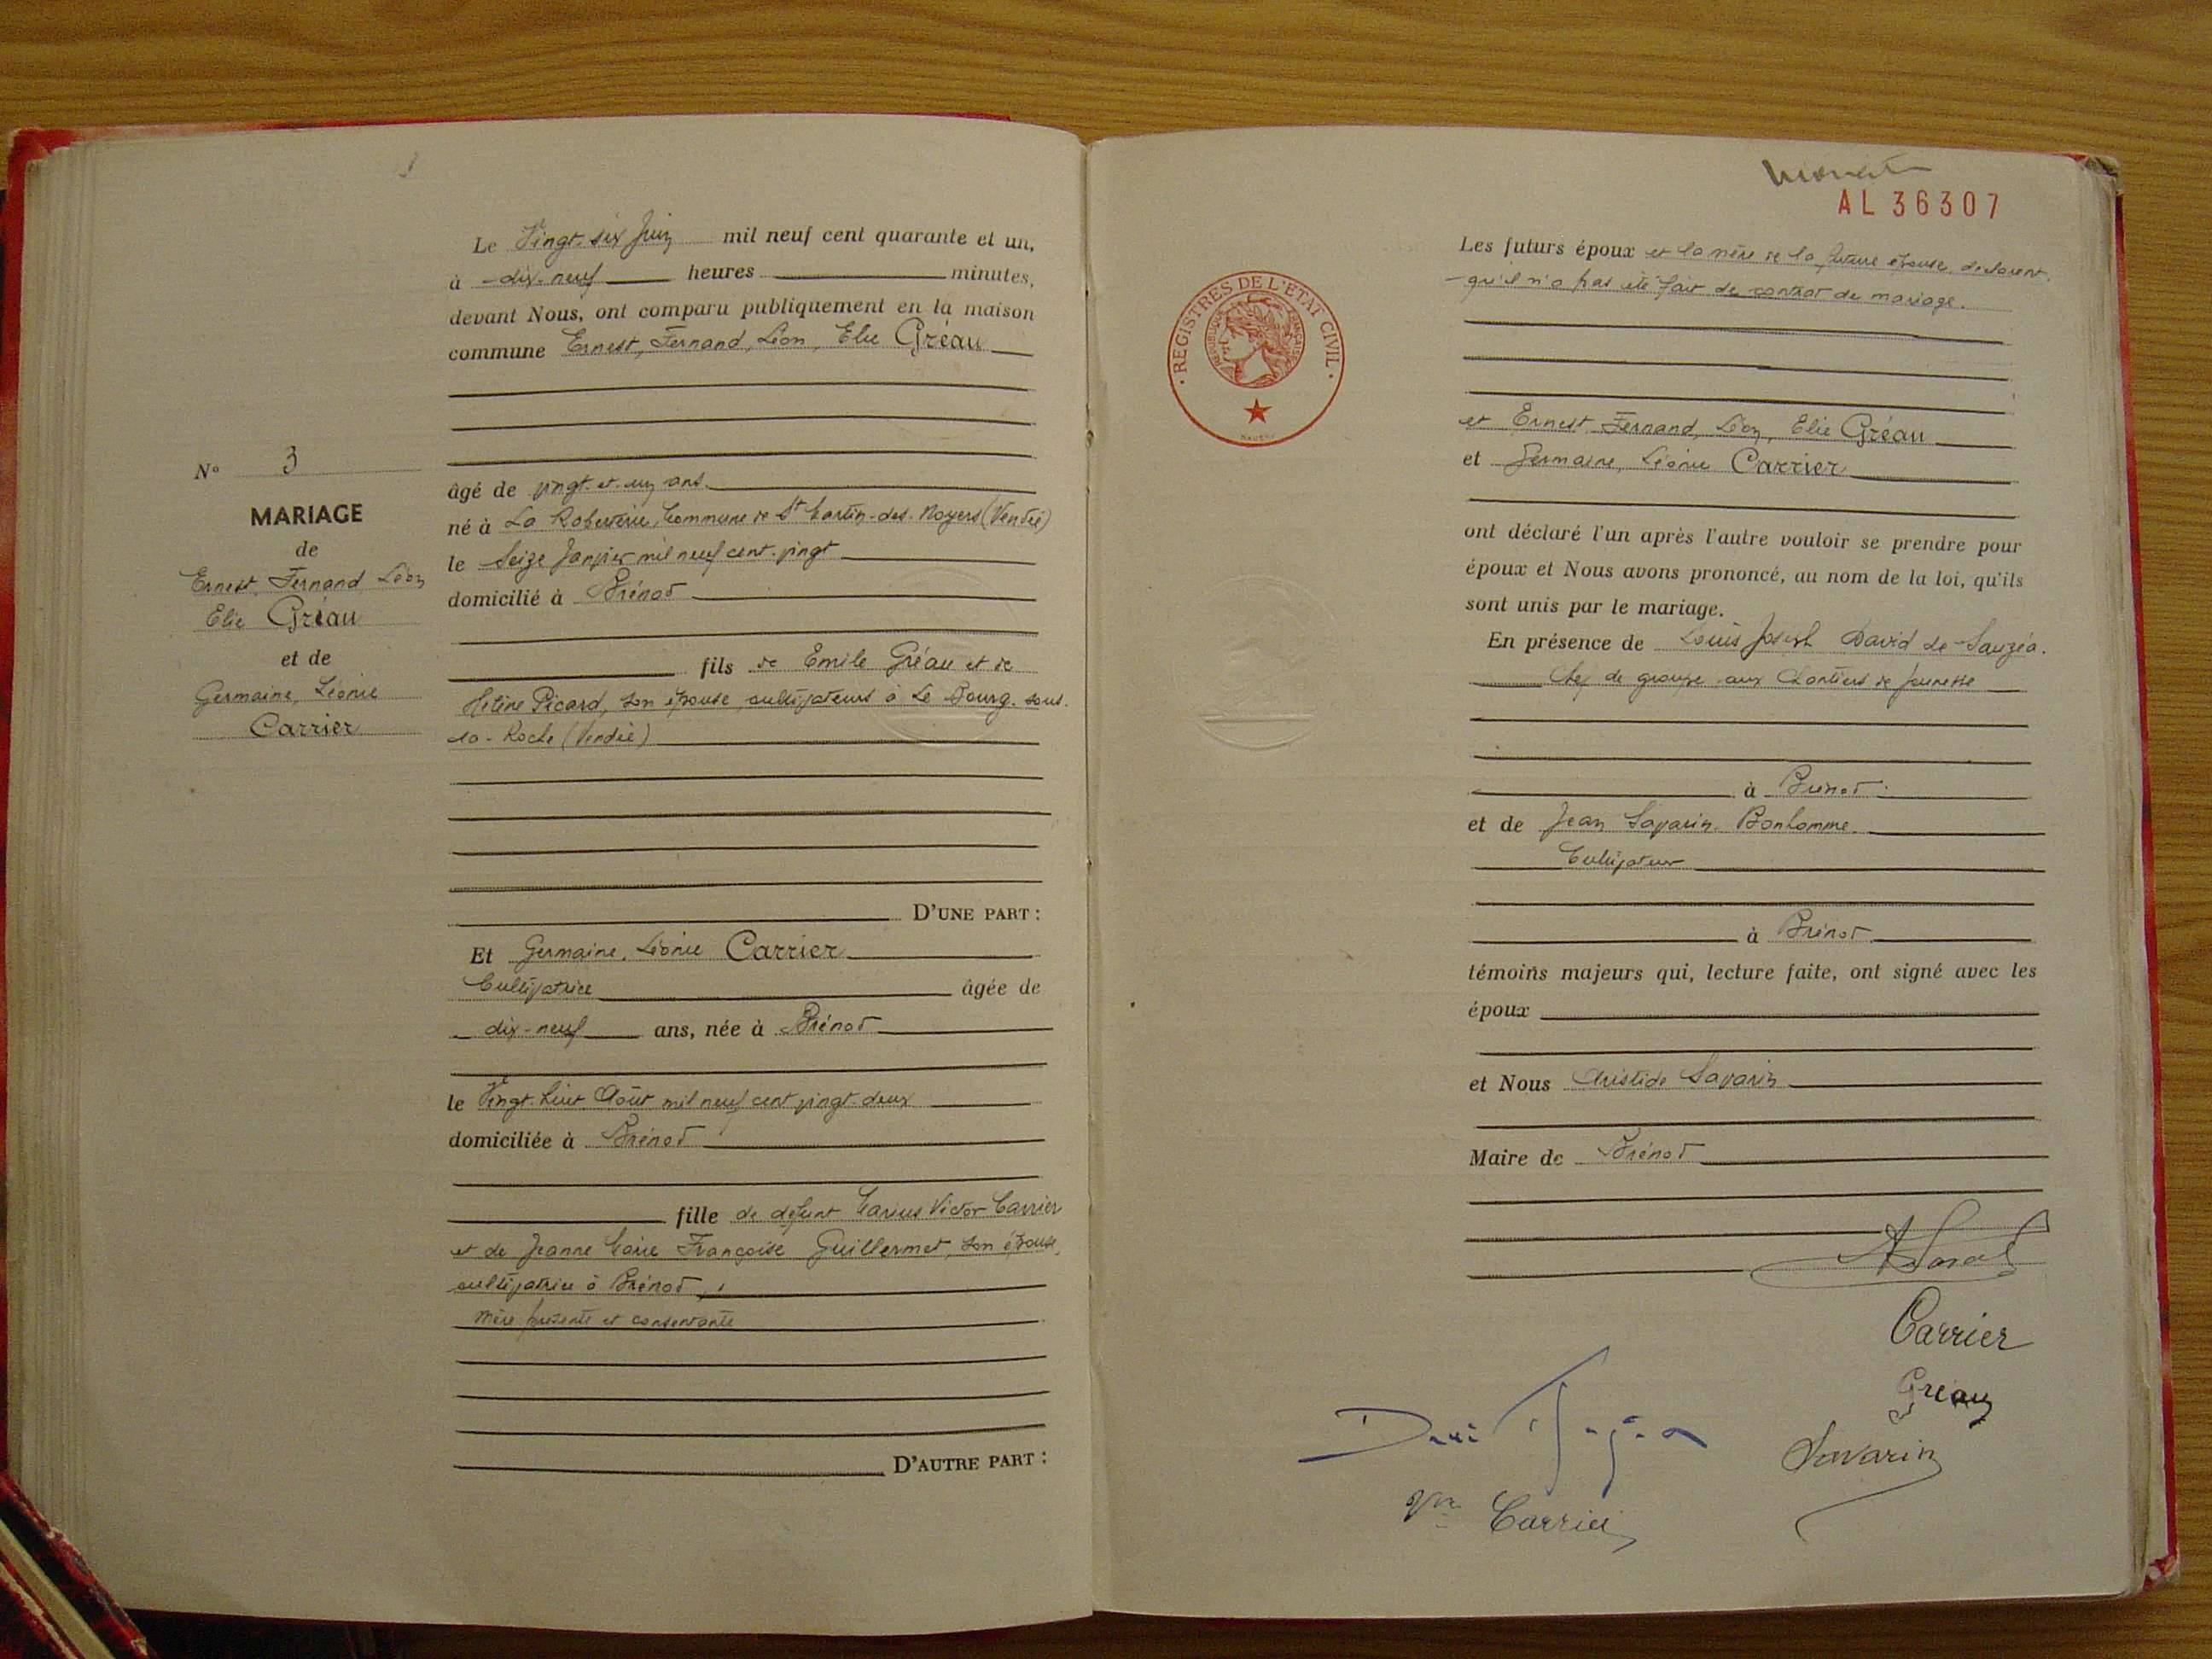 Le Vingt-six Juin mil neuf cent quarante et un,
à dix-neuf heures minutes,
devant Nous, ont comparu publiquement en la maison
commune Ernest, Fernand, Léon, Elie Gréau
N° 3
MARIAGE
de
Ernest, Fernand Léon
Elie Gréau
et de
Germaine, Léonie
Carrier
âgé de vingt-et-un ans.
né à La Commune de St Martin-des-Noyers (Vendée)
le Seize Janvier mil neuf cent-vingt
domicilié à Brénod
fils de Emile Gréau et de
Hélène Picard, son épouse, cultivateurs à Le Bourg-sous-
la-Roche (Vendée)
D'UNE PART :
Et Germaine, Léonie Carrier
Cultivatrice âgée de
dix-neuf ans, née à Brénod
le Vingt-huit Août mil neuf cent vingt-deux
domiciliée à Brénod
fille de défunt Marius Victor Carrier
et de Jeanne Marie Françoise Guillermet, son épouse,
cultivatrice à Brénod,
mère présente et consentante
D'AUTRE PART :
AL 36307
REGISTRES DE L'ÉTAT CIVIL
RÉPUBLIQUE FRANÇAISE
Les futurs époux et la mère de la future épouse déclarent
qu'il n'a pas été fait de contrat de mariage.
et Ernest, Fernand, Léon, Elie Gréau
et Germaine, Léonie Carrier
ont déclaré l'un après l'autre vouloir se prendre pour
époux et Nous avons prononcé, au nom de la loi, qu'ils
sont unis par le mariage.
En présence de Louis Joseph David de Sauzéa.
Chef de groupe aux Chantiers de jeunesse
à Brénod
et de Jean Savarin-Bonhomme
Cultivateur
à Brénod
témoins majeurs qui, lecture faite, ont signé avec les
époux
et Nous Aristide Savarin
Maire de Brénod
Carrier
Gréau
Savarin
Vve Carrier